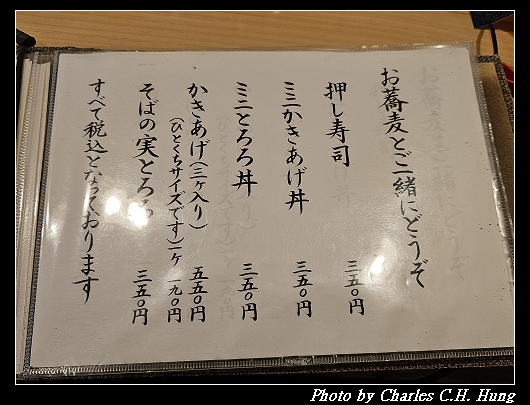 お蕎麦とご一緒にどうぞ
押し寿司 三五〇円
ミニかきあげ丼 三五〇円
ミニとろろ丼 三五〇円
かきあげ(三ヶ入り) 五五〇円
(ひとくちサイズです)一ヶ 一九〇円
そばの実とろろ 三五〇円
すべて税込となっております
Photo by Charles C.H. Hung